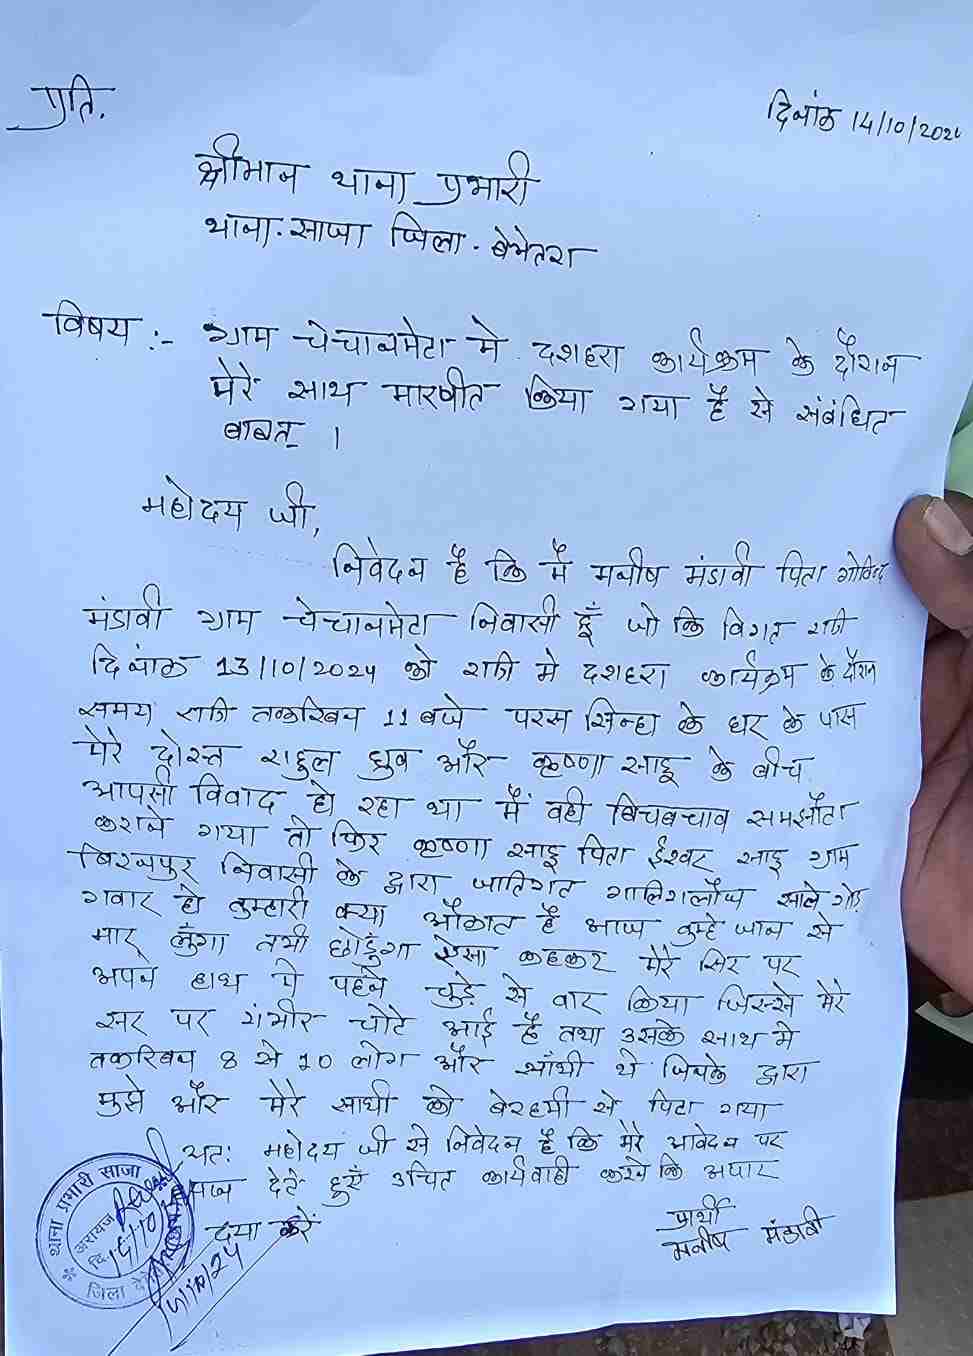 प्रति,
दिनांक 14/10/202
श्रीमान थाना प्रभारी
थाना. साजा जिला. बेमेतरा
विषय :- ग्राम चेचानमेटा मे दशहरा कार्यक्रम के दौरान
मेरे साथ मारपीट किया गया है से संबंधित
बाबत् ।
महोदय जी,
निवेदन है कि मै मनीष मंडावी पिता गोविन्द
मंडावी ग्राम चेचानमेटा निवासी हूँ जो कि विगत रात्री
दिनांक 13/10/2024 को रात्री मे दशहरा कार्यक्रम के दौरान
समय रात्री तकरिबन 11 बजे परस सिन्हा के घर के पास
मेरे दोस्त राहुल ध्रुव और कृष्णा साहू के बीच
आपसी विवाद हो रहा था मैं वही बिचबचाव समझौता
कराने गया तो फिर कृष्णा साहू पिता ईश्वर साहू ग्राम
बिरनपुर निवासी के द्वारा जातिगत गालिगलौच साले गोड़
गवार हो तुम्हारी क्या औकात है आज तुम्हे जान से
मार लुँगा तभी छोडुँगा ऐसा कहकर मेरे सिर पर
अपने हाथ मे पहने चुड़े से वार किया जिस्से मेरे
सर पर गंभीर चोटे आई है तथा उसके साथ मे
तकरिबन 8 से 10 लोग और साँथी थे जिनके द्वारा
मुझे और मेरे साथी को बेरहमी से पिटा गया
अतः महोदय जी से निवेदन है कि मेरे आवेदन पर
देते हुएँ उचित कार्यवाही करने कि अपार
दया करें
प्रार्थी
मनीष मंडावी
थाना प्रभारी साजा
दि.
जिला